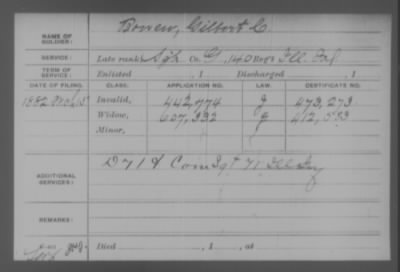 NAME OF SOLDIER: Bowen, Gilbert C.
SERVICE: Late rank, Co. G, 140 Reg't Ill. Inf.
TERM OF SERVICE: Enlisted , 1 Discharged , 1
DATE OF FILING. CLASS. APPLICATION NO. LAW. CERTIFICATE NO.
1882 Invalid, 442,774 J 473,273
Widow, 607,392 412,583
Minor,
ADDITIONAL SERVICES: D 71 & Com Sgt 71 Ill Inf
REMARKS:
Died , 1 , at